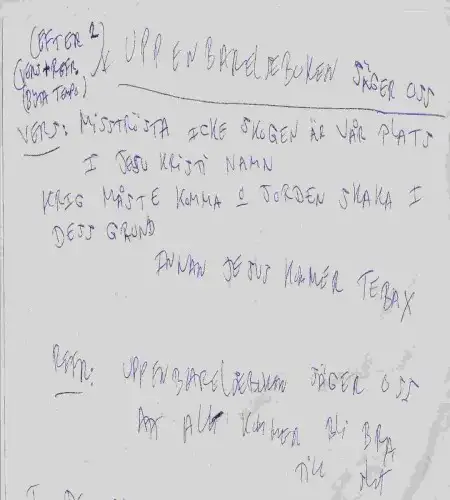 (EFTER 2)
(VERS + REFR.
BYTA TEMPO)
UPPENBARELSEBOKEN SÄGER OSS
VERS: MISSTRÖSTA ICKE SKOGEN ÄR VÅR PLATS
I JESU KRISTI NAMN
KRIG MÅSTE KOMMA O JORDEN SKAKA I
DESS GRUND
INNAN JESUS KOMMER TEBAX
REFR: UPPENBARELSEBOKEN SÄGER OSS
ATT ALLT KOMMER BLI BRA
TILL